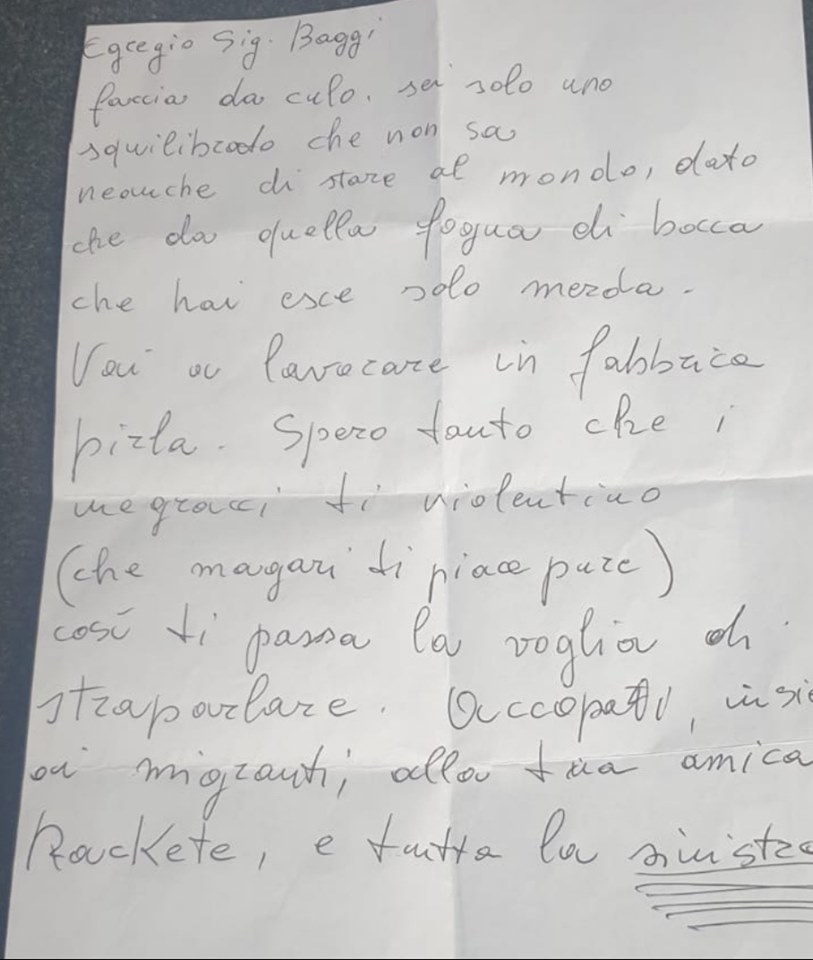 Egregio Sig. Baggi
faccia da culo. sei solo uno
squilibrato che non sa
neanche di stare al mondo, dato
che da quella fogna di bocca
che hai esce solo merda.
Vai a lavorare in fabbrica
pirla. Spero tanto che i
negracci ti violentino
(che magari ti piace pure)
così ti passa la voglia di
straparlare. Accoppati, insie
ai migranti, alla tua amica
Rackete, e tutta la sinistra